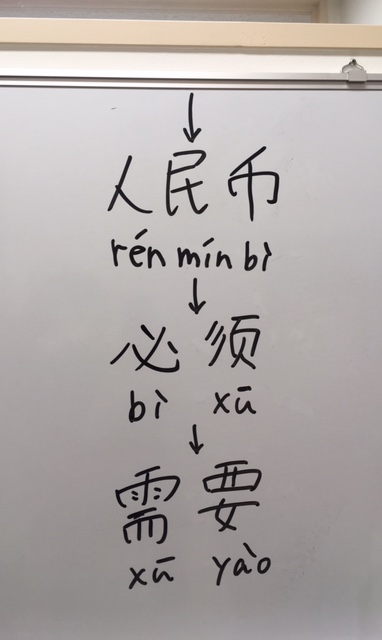 ↓
人民币
rén mín bì
↓
必须
bì xū
↓
需要
xū yào